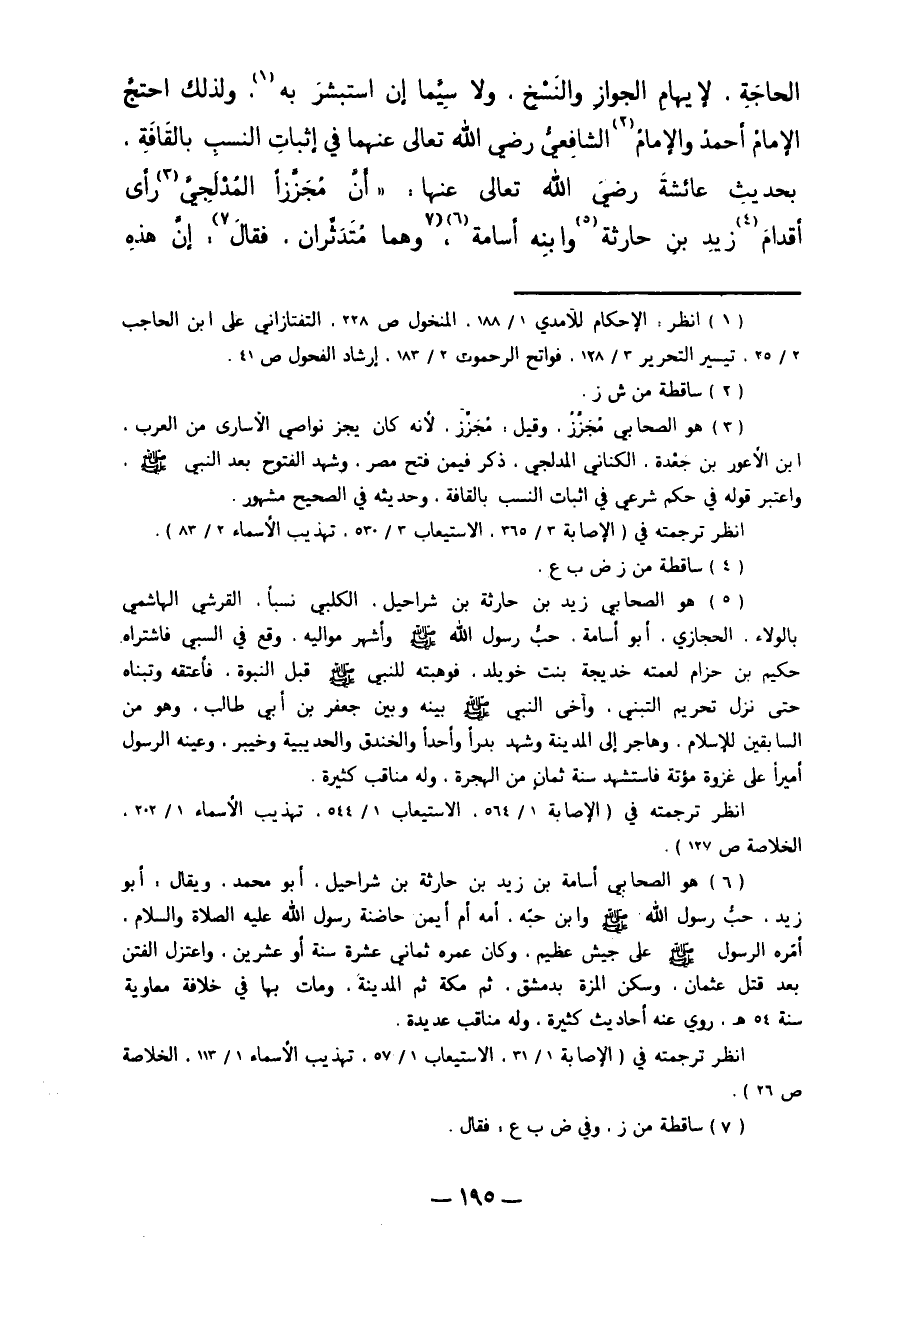 الحاجَةِ ، لإيهامِ الجوازِ والنَّسْخِ ، ولا سيَّما إن استبشرَ به (١). ولذلك احتجَّ
الإمامُ أحمدُ والإمامُ (٢) الشافعيُّ رضي الله تعالى عنهما في إثباتِ النسبِ بالقَافَةِ .
بحديثِ عائشةَ رضيَ الله تعالى عنها : « أنَّ مُجَزِّزاً المُدْلَجيَّ (٣) رأى
أقدامَ (٤) زيدِ بنِ حارثة (٥) وابنِه أسامة (٦)، (٧ وهما مُتَدَثِّران ، فقالَ ٧) : إنَّ هذهِ
( ١ ) انظر : الإحكام للآمدي ١ / ١٨٨ ، المنخول ص ٢٢٨ ، التفتازاني على ابن الحاجب
٢ / ٢٥ ، تيسير التحرير ٣ / ١٢٨ ، فواتح الرحموت ٢ / ١٨٣ ، إرشاد الفحول ص ٤١ .
( ٢ ) ساقطة من ش ز .
( ٣ ) هو الصحابي مُجَزِّزٌ ، وقيل : مُجَزَّز ، لأنه كان يجز نواصي الأسارى من العرب ،
ابن الأعور بن جَعْدة ، الكناني المدلجي ، ذكر فيمن فتح مصر ، وشهد الفتوح بعد النبي ﷺ ،
واعتبر قوله في حكم شرعي في اثبات النسب بالقافة ، وحديثه في الصحيح مشهور .
انظر ترجمته في ( الإصابة ٣ / ٣٦٥ ، الاستيعاب ٣ / ٥٣٠ ، تهذيب الأسماء ٢ / ٨٣ ) .
( ٤ ) ساقطة من ز ض ب ع .
( ٥ ) هو الصحابي زيد بن حارثة بن شراحيل ، الكلبي نسباً ، القرشي الهاشمي
بالولاء ، الحجازي ، أبو أسامة ، حبُّ رسول الله ﷺ وأشهر مواليه ، وقع في السبي فاشتراه
حكيم بن حزام لعمته خديجة بنت خويلد ، فوهبته للنبي ﷺ قبل النبوة ، فأعتقه وتبناه
حتى نزل تحريم التبني ، وآخى النبي ﷺ بينه وبين جعفر بن أبي طالب ، وهو من
السابقين للإسلام ، وهاجر إلى المدينة وشهد بدراً وأحداً والخندق والحديبية وخيبر ، وعينه الرسول
أميراً على غزوة مؤتة فاستشهد سنة ثمانٍ من الهجرة ، وله مناقب كثيرة .
انظر ترجمته في ( الإصابة ١ / ٥٦٤ ، الاستيعاب ١ / ٥٤٤ ، تهذيب الأسماء ١ / ٢٠٢ ،
الخلاصة ص ١٢٧ ) .
( ٦ ) هو الصحابي أسامة بن زيد بن حارثة بن شراحيل ، أبو محمد ، ويقال : أبو
زيد ، حبُّ رسول الله ﷺ وابن حبّه ، أمه أم أيمن حاضنة رسول الله عليه الصلاة والسلام ،
أمّره الرسول ﷺ على جيش عظيم ، وكان عمره ثماني عشرة سنة أو عشرين ، واعتزل الفتن
بعد قتل عثمان ، وسكن المزة بدمشق ، ثم مكة ثم المدينة ، ومات بها في خلافة معاوية
سنة ٥٤ هـ ، روي عنه أحاديث كثيرة ، وله مناقب عديدة .
انظر ترجمته في ( الإصابة ١ / ٣١ ، الاستيعاب ١ / ٥٧ ، تهذيب الأسماء ١ / ١١٣ ، الخلاصة
ص ٢٦ ) .
( ٧ ) ساقطة من ز ، وفي ض ب ع : فقال .
— ١٩٥ —